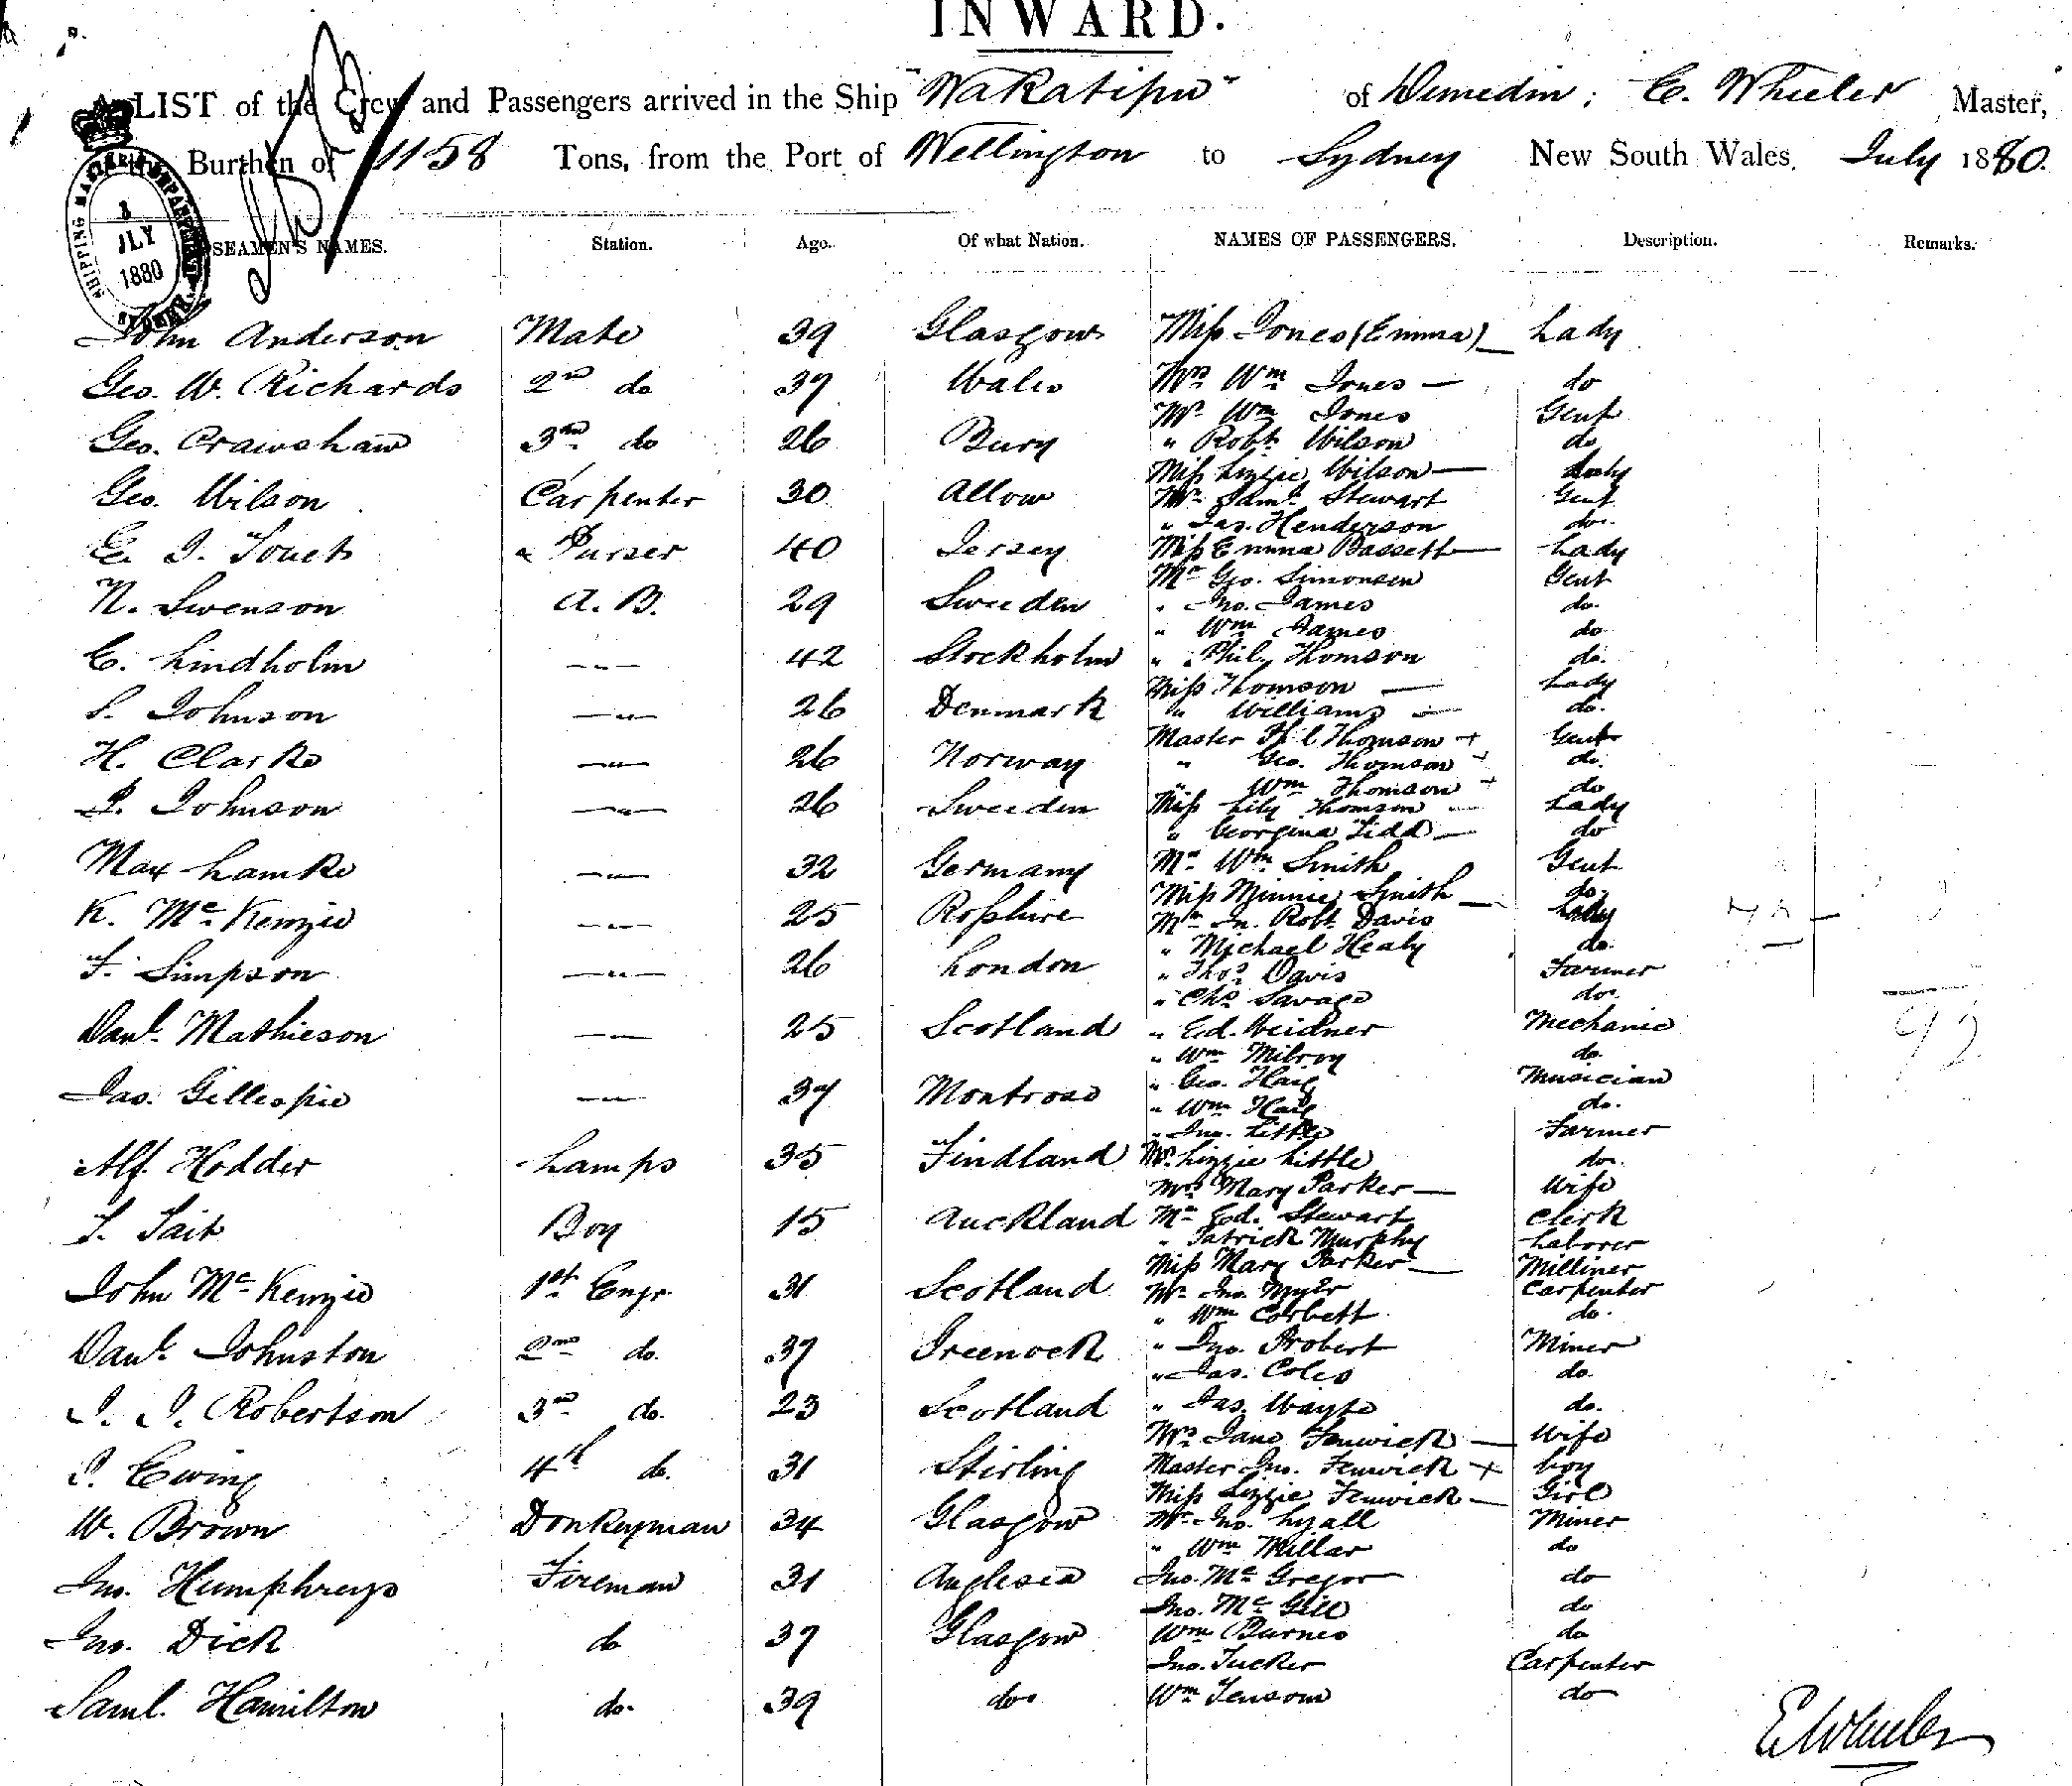 INWARD.
A LIST of the Crew and Passengers arrived in the Ship "Wakatipu" of Dunedin, E. Wheeler Master,
Burthen of 1158 Tons, from the Port of Wellington to Sydney New South Wales, July 1880.
SHIPPING MASTER'S DEPARTMENT SYDNEY
3
JLY
1880
SEAMEN'S NAMES. Station. Age. Of what Nation. NAMES OF PASSENGERS. Description. Remarks.
John Anderson Mate 39 Glasgow Miss Jones (Emma) Lady
Geo. W. Richards 2nd do 37 Wales Mrs Wm Jones — do
Mr Wm Jones Gent
Geo. Crawshaw 3rd do 26 Bury " Robt. Wilson do
Miss Lizzie Wilson — Lady
Geo. Wilson Carpenter 30 Allow Mr Saml. Stewart Gent
" Jas. Henderson do.
E. J. Touet " Purser 40 Jersey Miss Emma Bassett — Lady
Mr Geo. Simonsen Gent
N. Swenson A.B. 29 Sweeden " Jno. James do.
" Wm James do
C. Lindholm — " — 42 Stockholm " Phil. Thomson do.
Miss Thomson — Lady
S. Johnson — " — 26 Denmark " Williams — do.
Master Phil Thomson + Gent
H. Clarke — " — 26 Norway " Geo. Thomson + do.
" Wm Thomson + do
P. Johnson — " — 26 Sweeden Miss Lily Thomson — Lady
" Georgina Tidd — do
Max Lamke — " — 32 Germany Mr Wm Smith Gent
Miss Minnie Smith — do.
K. McKenzie — " — 25 Rosshire Mr Jn. Robt Davis Lady
" Michael Healy do.
F. Simpson — " — 26 London " Thos Davis Farmer
" Chs Savage do.
Danl. Mathieson — " — 25 Scotland " Ed. Weidner Mechanic
" Wm Milroy do.
Jas. Gillespie — " — 37 Montrose " Geo. Haig Musician
" Wm Haig do.
" Jno. Little Farmer
Alf. Hodder Lamps 35 Findland Mr. Lizzie Little do.
Mrs Mary Parker — Wife
T. Tait Boy 15 Auckland Mr Ed. Stewart Clerk
" Patrick Murphy Laborer
Miss Mary Parker — Milliner
John McKenzie 1st Engr. 31 Scotland Mr Jno Myler Carpenter
" Wm Corbett do.
Danl. Johnston 2nd do. 37 Greenock " Jno. Probert Miner
" Jas. Coles do.
J. J. Robertson 3rd do. 23 Scotland " Jas. Wayte do.
Mrs Jane Fenwick — Wife
J. Ewing 4th do. 31 Stirling Master Jno. Fenwick + boy
Miss Lizzie Fenwick — Girl
W. Brown Donkeyman 34 Glasgow Mr Jno. Lyall Miner
" Wm Millar do
Jno. Humphreys Fireman 31 Anglesea Jno. McGregor do
Jno. McGill do
Jno. Dick do 37 Glasgow Wm Barnes do
Jno. Tucker Carpenter
Saml. Hamilton do. 39 do. Wm Tensom do
E Wheeler